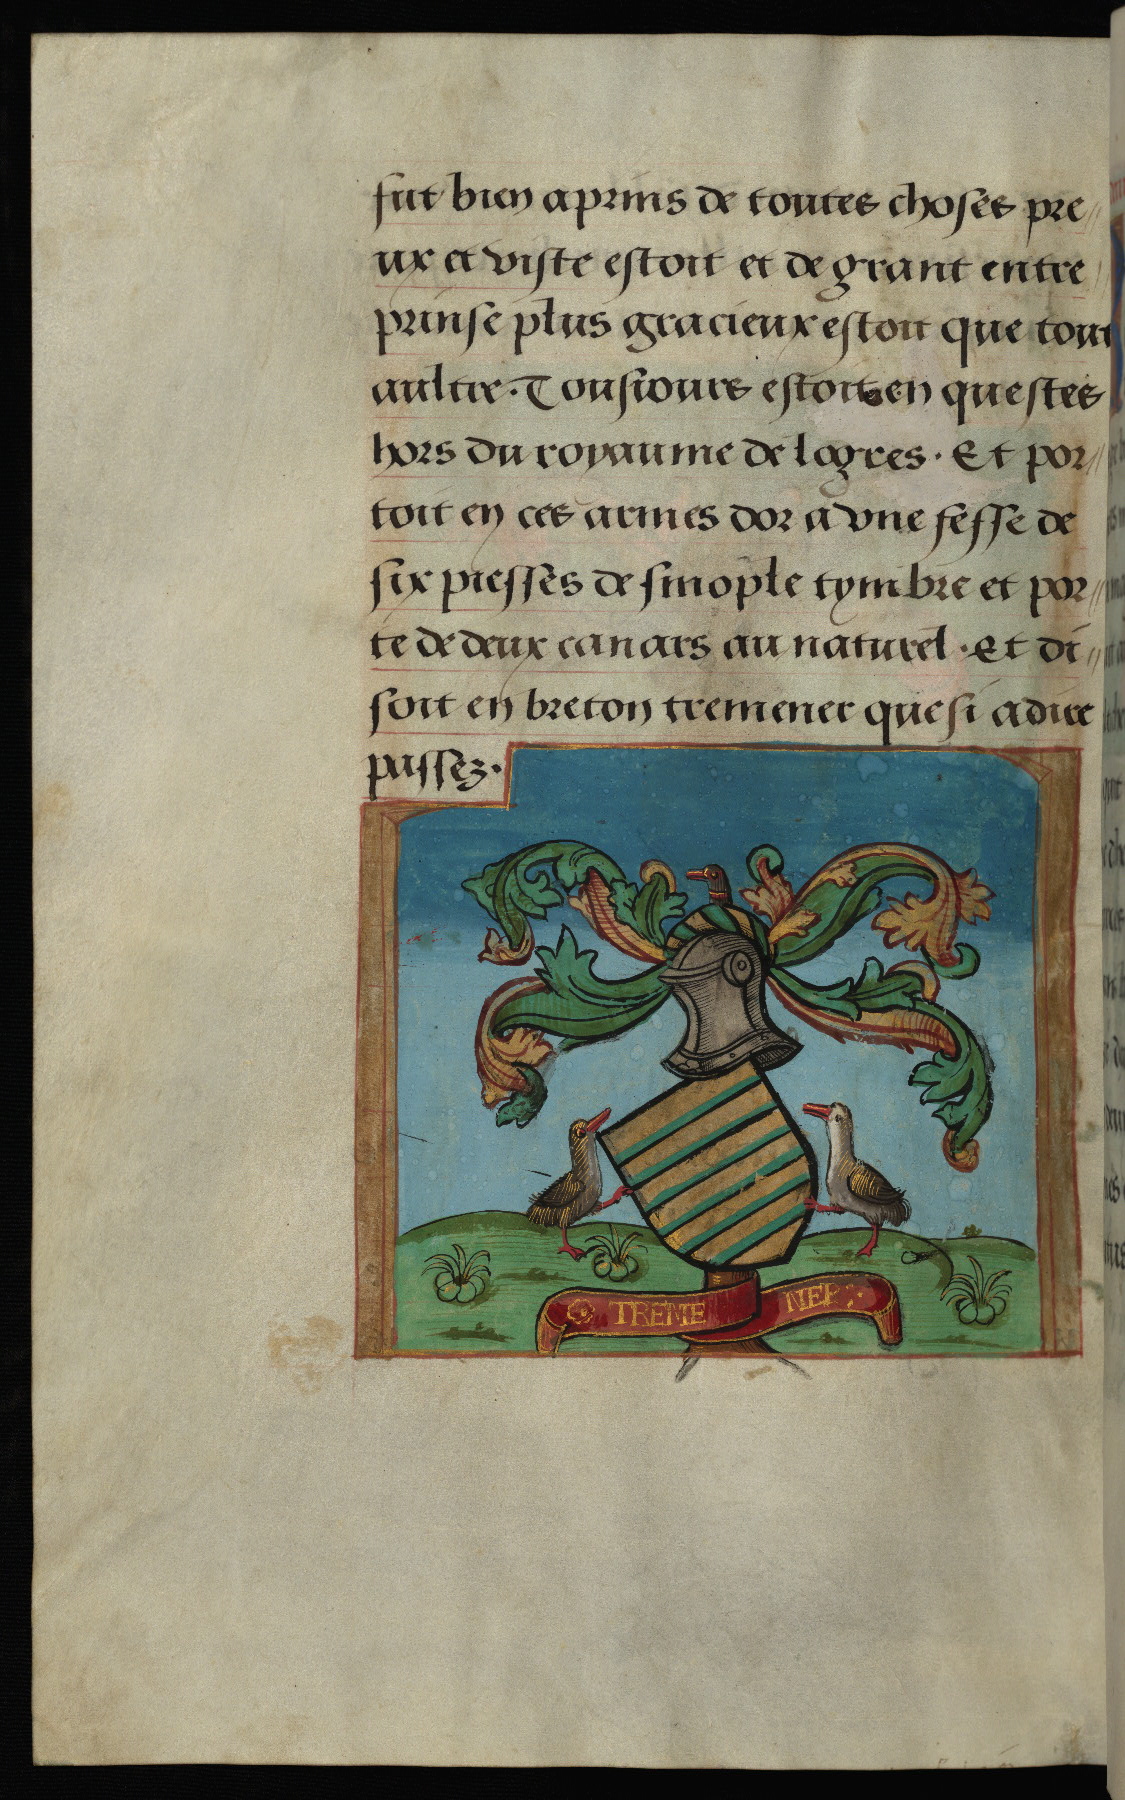 fut bien aprins de toutes choses pre//
ux et viste estoit et de grant entre
prinse plus gracieux estoit que tout
aultre. Tousiours estoit en questes
hors du royaume de logres. Et por//
toit en ces armes dor a vne fesse de
six piesses de sinople tymbre et por//
te de deux canars au naturel. Et di//
soit en breton tremener quesi adire
passez.
TREME NER